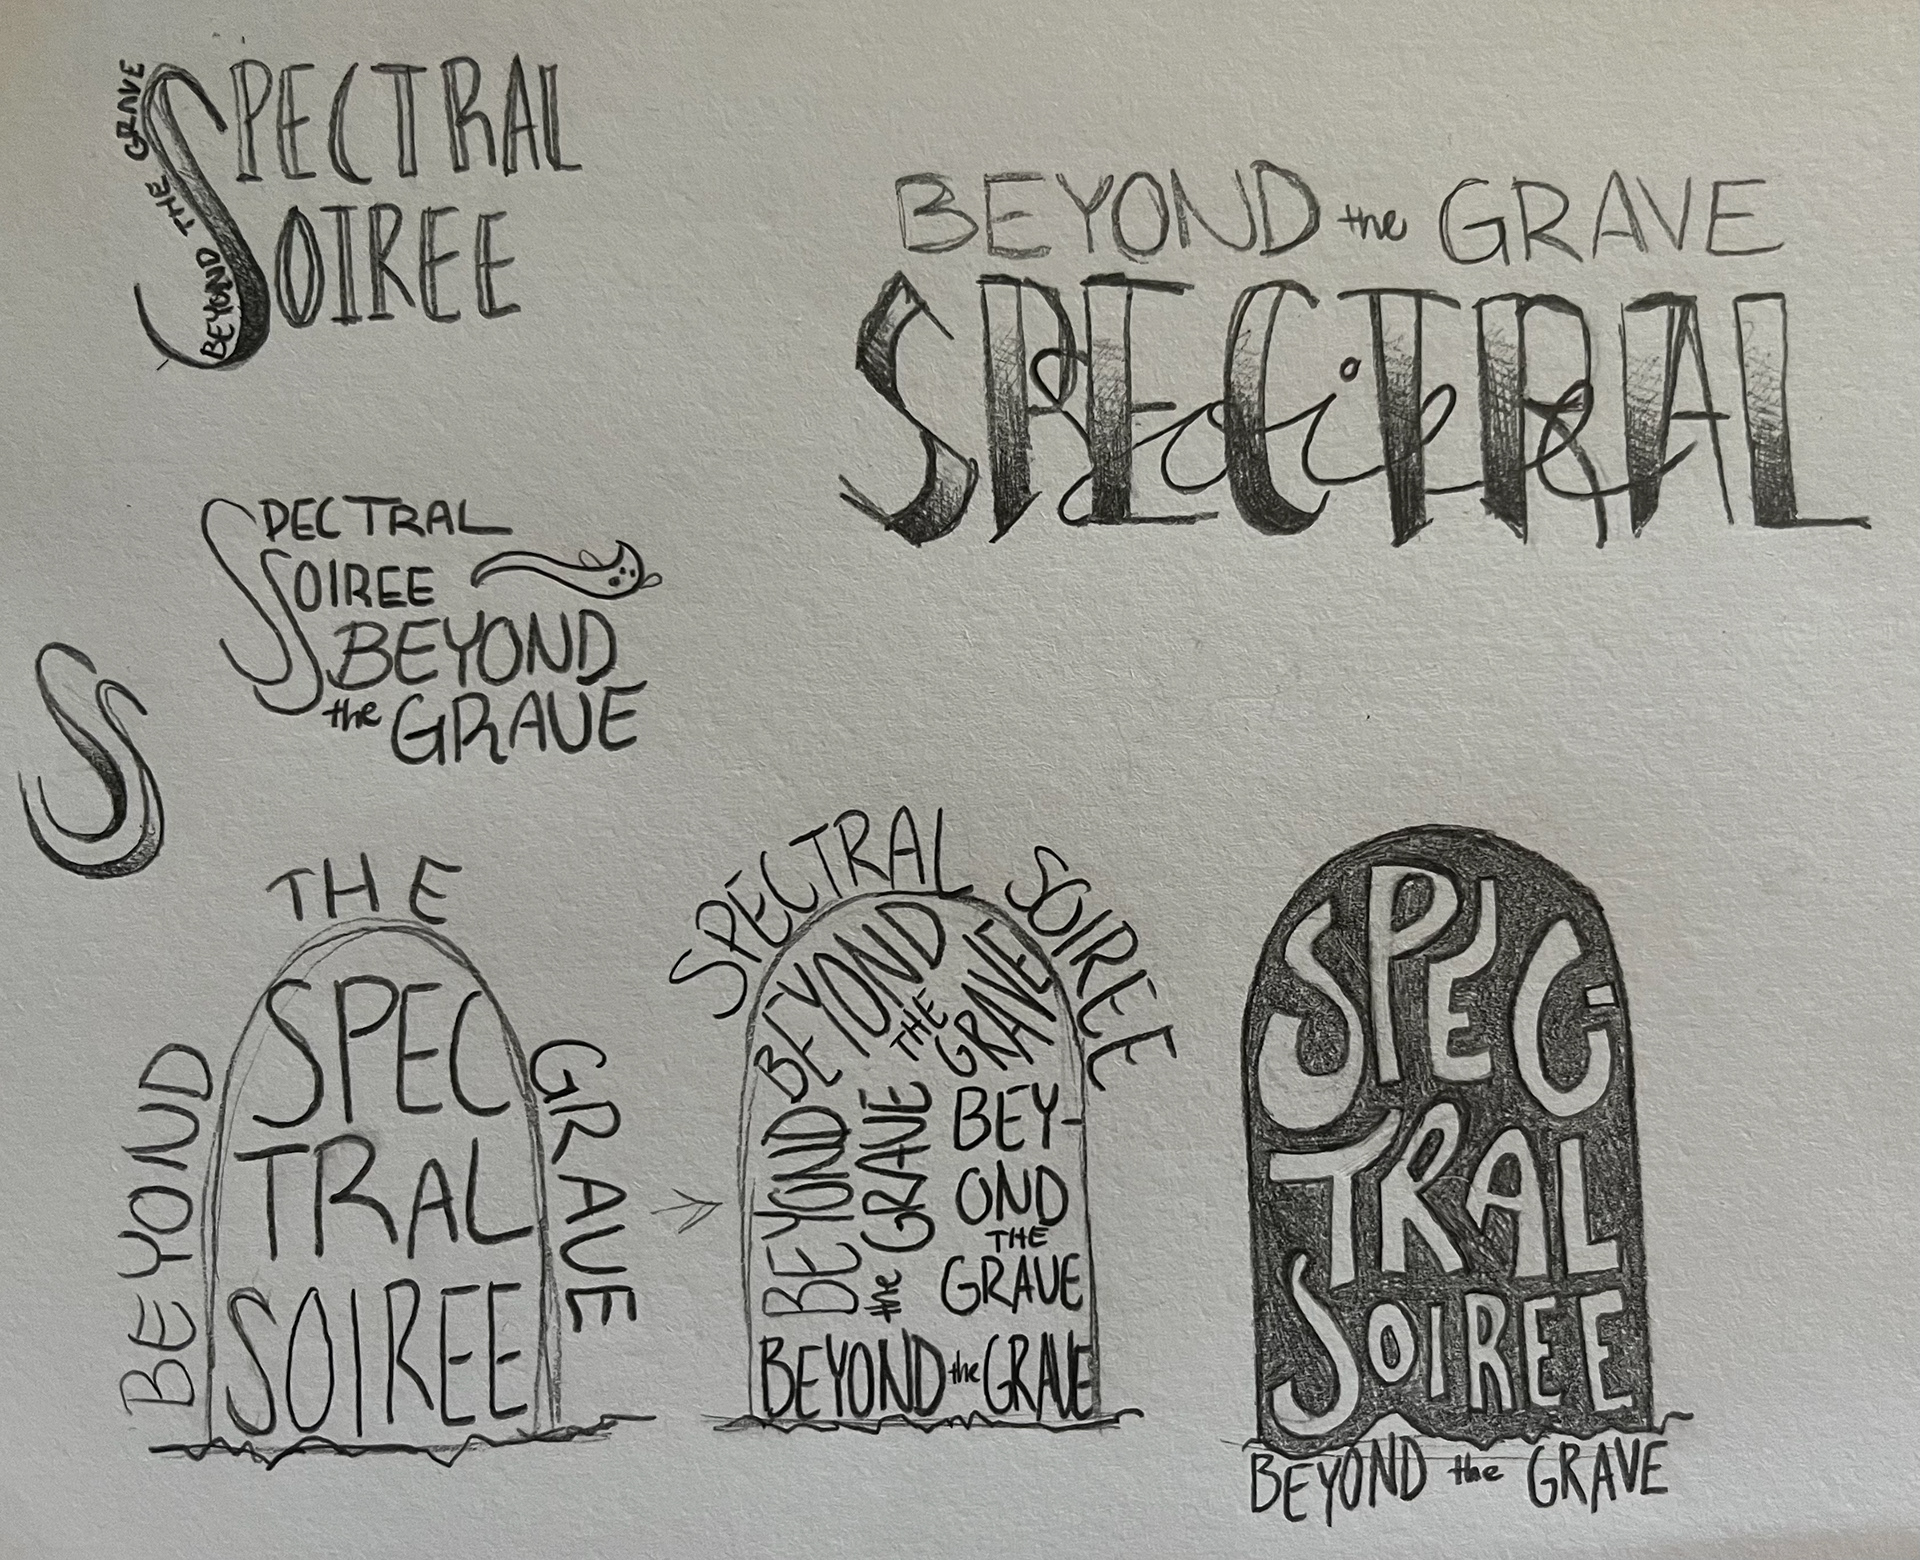 SPECTRAL
SOIREE
BEYOND THE GRAVE
BEYOND the GRAVE
SPECTRAL
Soiree
SPECTRAL
SOIREE
BEYOND
the GRAVE
SS
BEYOND
THE
GRAVE
SPEC
TRAL
SOIREE
SPECTRAL SOIREE
BEYOND
THE
GRAVE
BEYOND
the GRAVE
BEY-
OND
THE
GRAVE
BEYOND the GRAVE
SPEC-
TRAL
SOIREE
BEYOND the GRAVE